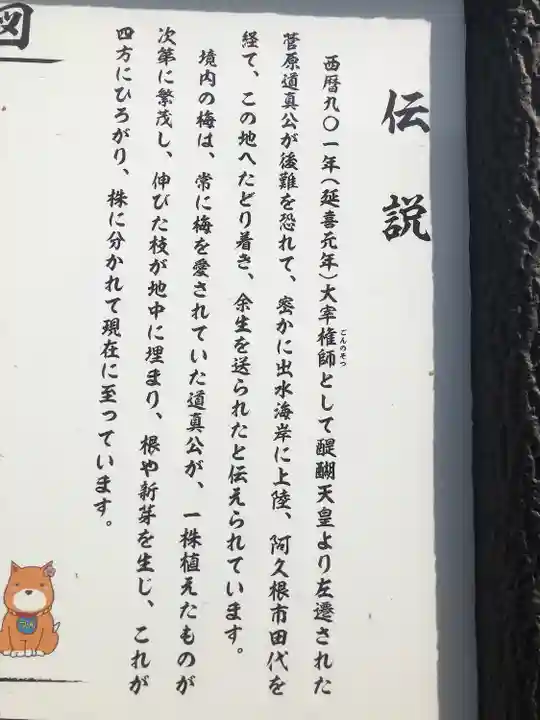 図
伝説
西暦九〇一年(延喜元年)大宰権師として醍醐天皇より左遷された
ごんのそつ
菅原道真公が後難を恐れて、密かに出水海岸に上陸、阿久根市田代を
経て、この地へたどり着き、余生を送られたと伝えられています。
境内の梅は、常に梅を愛されていた道真公が、一株植えたものが
次第に繁茂し、伸びた枝が地中に埋まり、根や新芽を生じ、これが
四方にひろがり、株に分かれて現在に至っています。